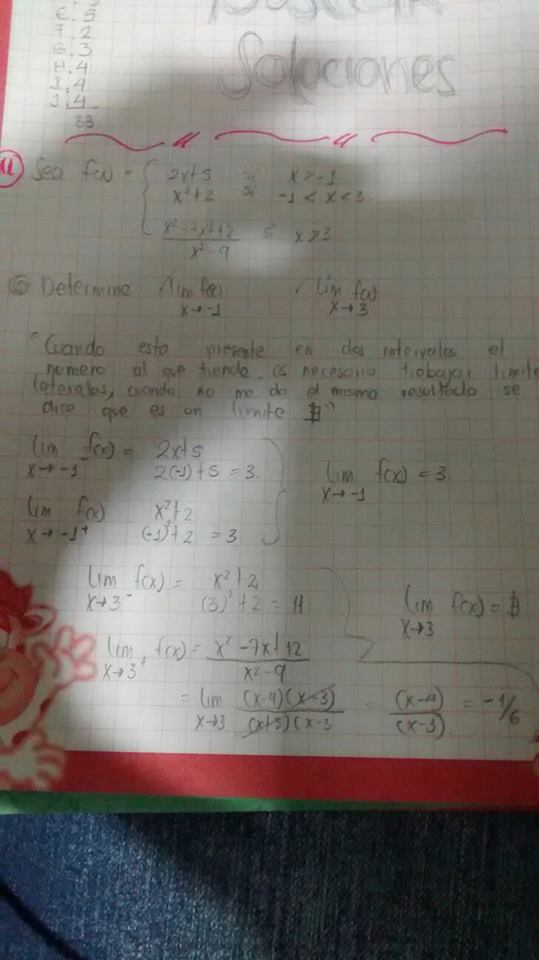 E. 5
F. 2
G. 3
H. 4
I. 4
J. 4
33
Buscar
Soluciones
11 Sea f(x) = { 2x+5 si x > -1
x²+2 si -1 < x < 3
x²-7x+12 / x²-9 si x ≥ 3
Determine lim f(x) x→-1 lim f(x) x→3
"Cuando esta presente en dos intervalos el
numero al que tiende, es necesario trabajar limite
laterales, cuando no me da el mismo resultado se
dice que es un limite ∄"
lim f(x) = 2x+5
x→-1 2(-1)+5 = 3.
lim f(x) = 3
x→-1
lim f(x) x²+2
x→-1⁺ (-1)²+2 = 3.
lim f(x) = x²+2
x→3⁻ (3)²+2 = 11
lim f(x) = ∄
x→3
lim f(x) = x²-7x+12 / x²-9
x→3⁺
= lim x→3 (x-4)(x-3) / (x+3)(x-3 = (x-4) / (x-3). = -1/6